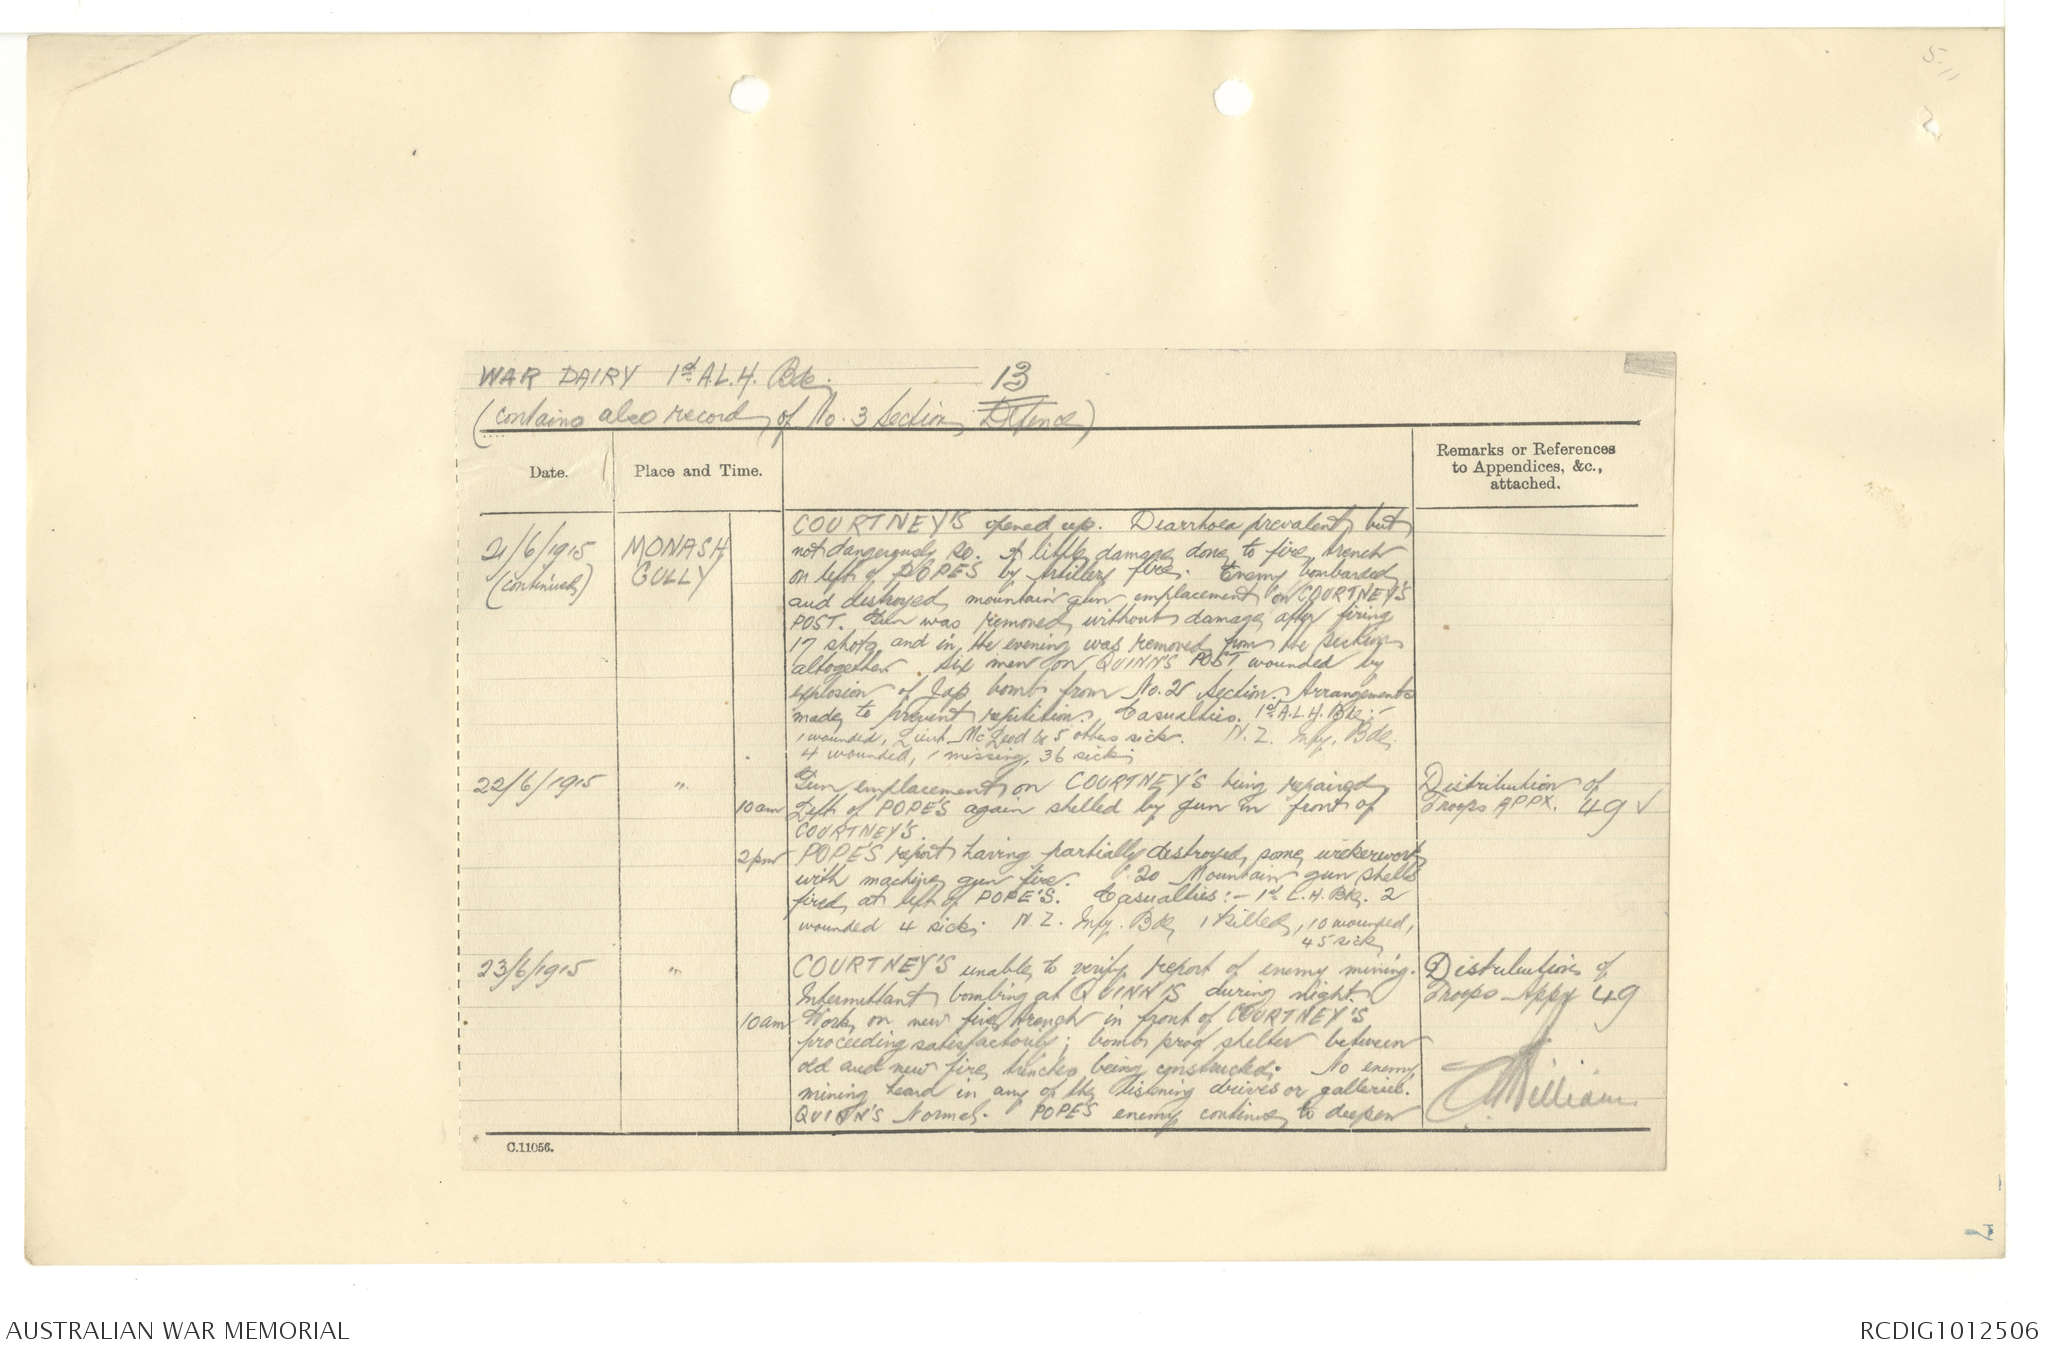 WAR DAIRY 1st A.L.H. Bde.
13
(contains also record of No. 3 Section Defence)
Date.
Place and Time.
Remarks or References
to Appendices, &c.,
attached.
21/6/1915
(continued)
MONASH
GULLY
COURTNEY'S opened up. Diarrhoea prevalent but
not dangerously so. A little damage done to fire trench
on left of POPES by Artillery fire. Enemy bombarded
and destroyed mountain gun emplacement on COURTNEY'S
POST. Gun was removed without damage after firing
17 shots and in the evening was removed from the section
altogether. Six men on QUINN'S POST wounded by
explosion of Jap bomb from No. 2 Section. Arrangements
made to prevent repetition. Casualties. 1st A.L.H. Bde:-
1 wounded, Lieut. McLeod & 5 others sick. N.Z. Infy. Bde.
4 wounded, 1 missing, 36 sick;
22/6/1915
"
Gun emplacement on COURTNEY'S being repaired
10am Left of POPE'S again shelled by gun in front of
COURTNEY'S.
2pm POPE'S report having partially destroyed some wickerwork
with machine gun fire. 20 Mountain gun shells
fired at left of POPE'S. Casualties:- 1st L.H. Bde. 2
wounded 4 sick; N.Z. Infy. Bde 1 killed, 10 wounded,
45 sick
Distribution of
Troops APPX. 49 ✓
23/6/1915
"
COURTNEY'S unable to verify report of enemy mining.
Intermittant bombing at QUINN'S during night.
10am Work on new fire trench in front of COURTNEY'S
proceeding satisfactorily; bomb proof shelter between
old and new fire trenches being constructed. No enemy
mining heard in any of the listening drives or galleries.
QUINN'S Normal. POPES enemy continue to deepen
Distribution of
Troops Appx 49
C.11056.
7
AUSTRALIAN WAR MEMORIAL
RCDIG1012506